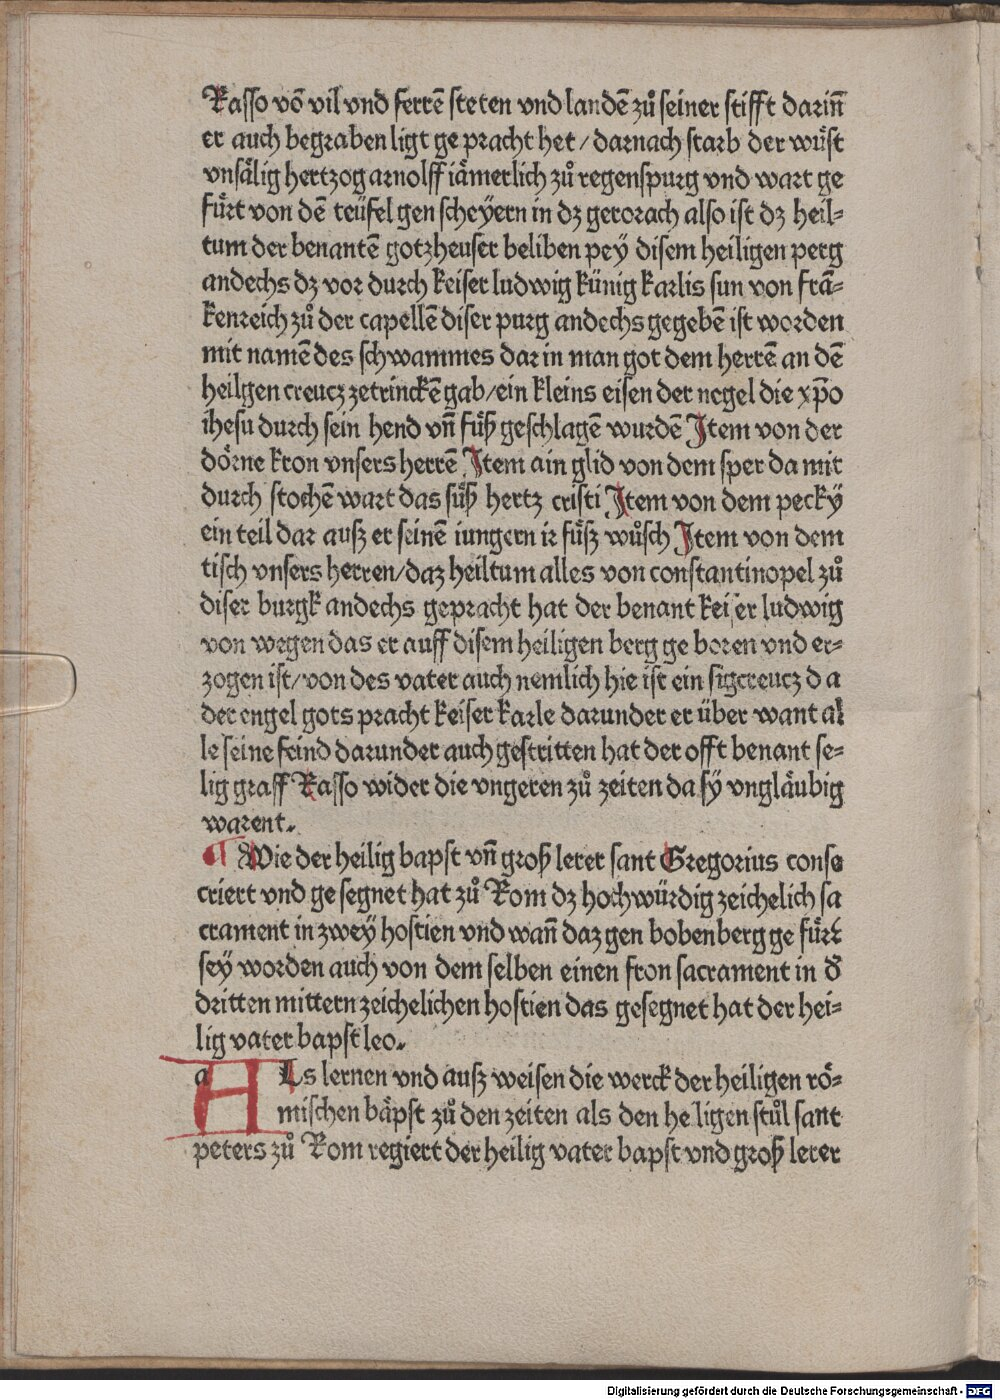 Rasso vō vil vnd ferrē steten vnd landē zů seiner stifft darin̄
er auch begraben ligt ge pracht het / darnach starb der wuͤst
vnsaͤlig hertzog arnolff iaͤmerlich zů regenspurg vnd wart ge
fuͤrt von dē teüfel gen scheÿern in dz gerorach also ist dz heil⸗
tum der benantē gotzheuser beliben peÿ disem heiligen perg
andechs dz vor durch keiser ludwig künig karlis sun von frā⸗
kenreich zů der capellē diser purg andechs gegebē ist worden
mit namē des schwammes dar in man got dem herrē an dē
heilgen creucz zetrinckē gab/ein kleins eisen der negel die xp̄o
ihesu durch sein hend vn̄ fuͤß geschlagē wurdē Item von der
doͤrne kron vnsers herrē Item ain glid von dem sper da mit
durch stochē wart das suͤß hertz cristi Item von dem peckÿ
ein teil dar auß er seinē iungern ir fuͤsz wůsch Item von dem
tisch vnsers herren/daz heiltum alles von constantinopel zů
diser burgk andechs gepracht hat der benant keiser ludwig
von wegen das er auff disem heiligen berg ge boren vnd er⸗
zogen ist/von des vater auch nemlich hie ist ein sigcreucz d a
der engel gots pracht keiser karle darunder er über want al
le seine feind darunder auch gestritten hat der offt benant se⸗
lig graff Rasso wider die vngeren zů zeiten da sÿ vnglaͤubig
warent.
¶ Wie der heilig bapst vn̄ groß lerer sant Gregorius conse
criert vnd ge segnet hat zů Rom dz hochwürdig zeichelich sa
crament in zweÿ hostien vnd wan̄ daz gen bobenberg ge fuͤrt
seÿ worden auch von dem selben einen fron sacrament in d̕
dritten mittern zeichelichen hostien das gesegnet hat der hei⸗
lig vater bapst leo.
ALs lernen vnd ausz weisen die werck der heiligen roͤ⸗
mischen baͤpst zů den zeiten als den heligen stůl sant
peters zů Rom regiert der heilig vater bapst vnd groß lerer
Digitalisierung gefördert durch die Deutsche Forschungsgemeinschaft - DFG